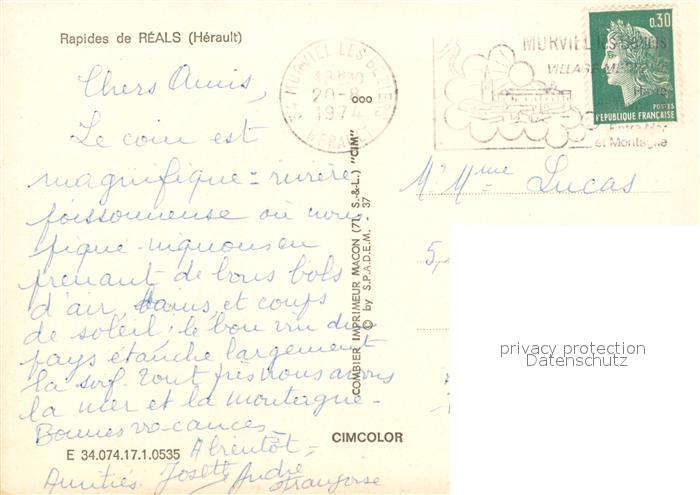 Rapides de RÉALS (Hérault)
34 MURVIEL LES BEZIERS
18H30
20-8
1974
HERAULT
MURVIEL LES BEZIERS
VILLAGE
et Montagne
0,30
POSTES
REPUBLIQUE FRANÇAISE
Chers Amis,
Le coin est
magnifique = rivière
poissonneuse où nous
pique-niquons en
prenant de bons bols
d'air, bains et coups
de soleil; le bon vin du
pays étanche largement
la soif. Tout près nous avons
la mer et la montagne -
Bonnes vacances -
A bientôt -
Amitiés. Josette André
Françoise
Mr Mme Lucas
5,
COMBIER IMPRIMEUR MACON (71, S.-&-L.) "CIM"
© by S.P.A.D.E.M. - 37
CIMCOLOR
E 34.074.17.1.0535
privacy protection
Datenschutz